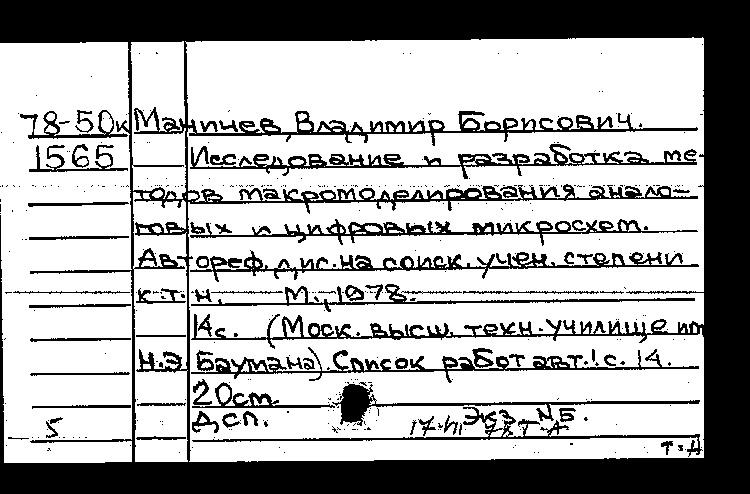 78-50к Маничев, Владимир Борисович.
1565 Исследование и разработка ме-
тодов макромоделирования анало-
говых и цифровых микросхем.
Автореф. дис. на соиск. учен. степени
к.т.н. М., 1978.
14с. (Моск. высш. техн. училище им
Н.Э. Баумана). Список работ авт.: с. 14.
20см.
Дсп. Экз. №Б.
5 17-VI 78 Т-А